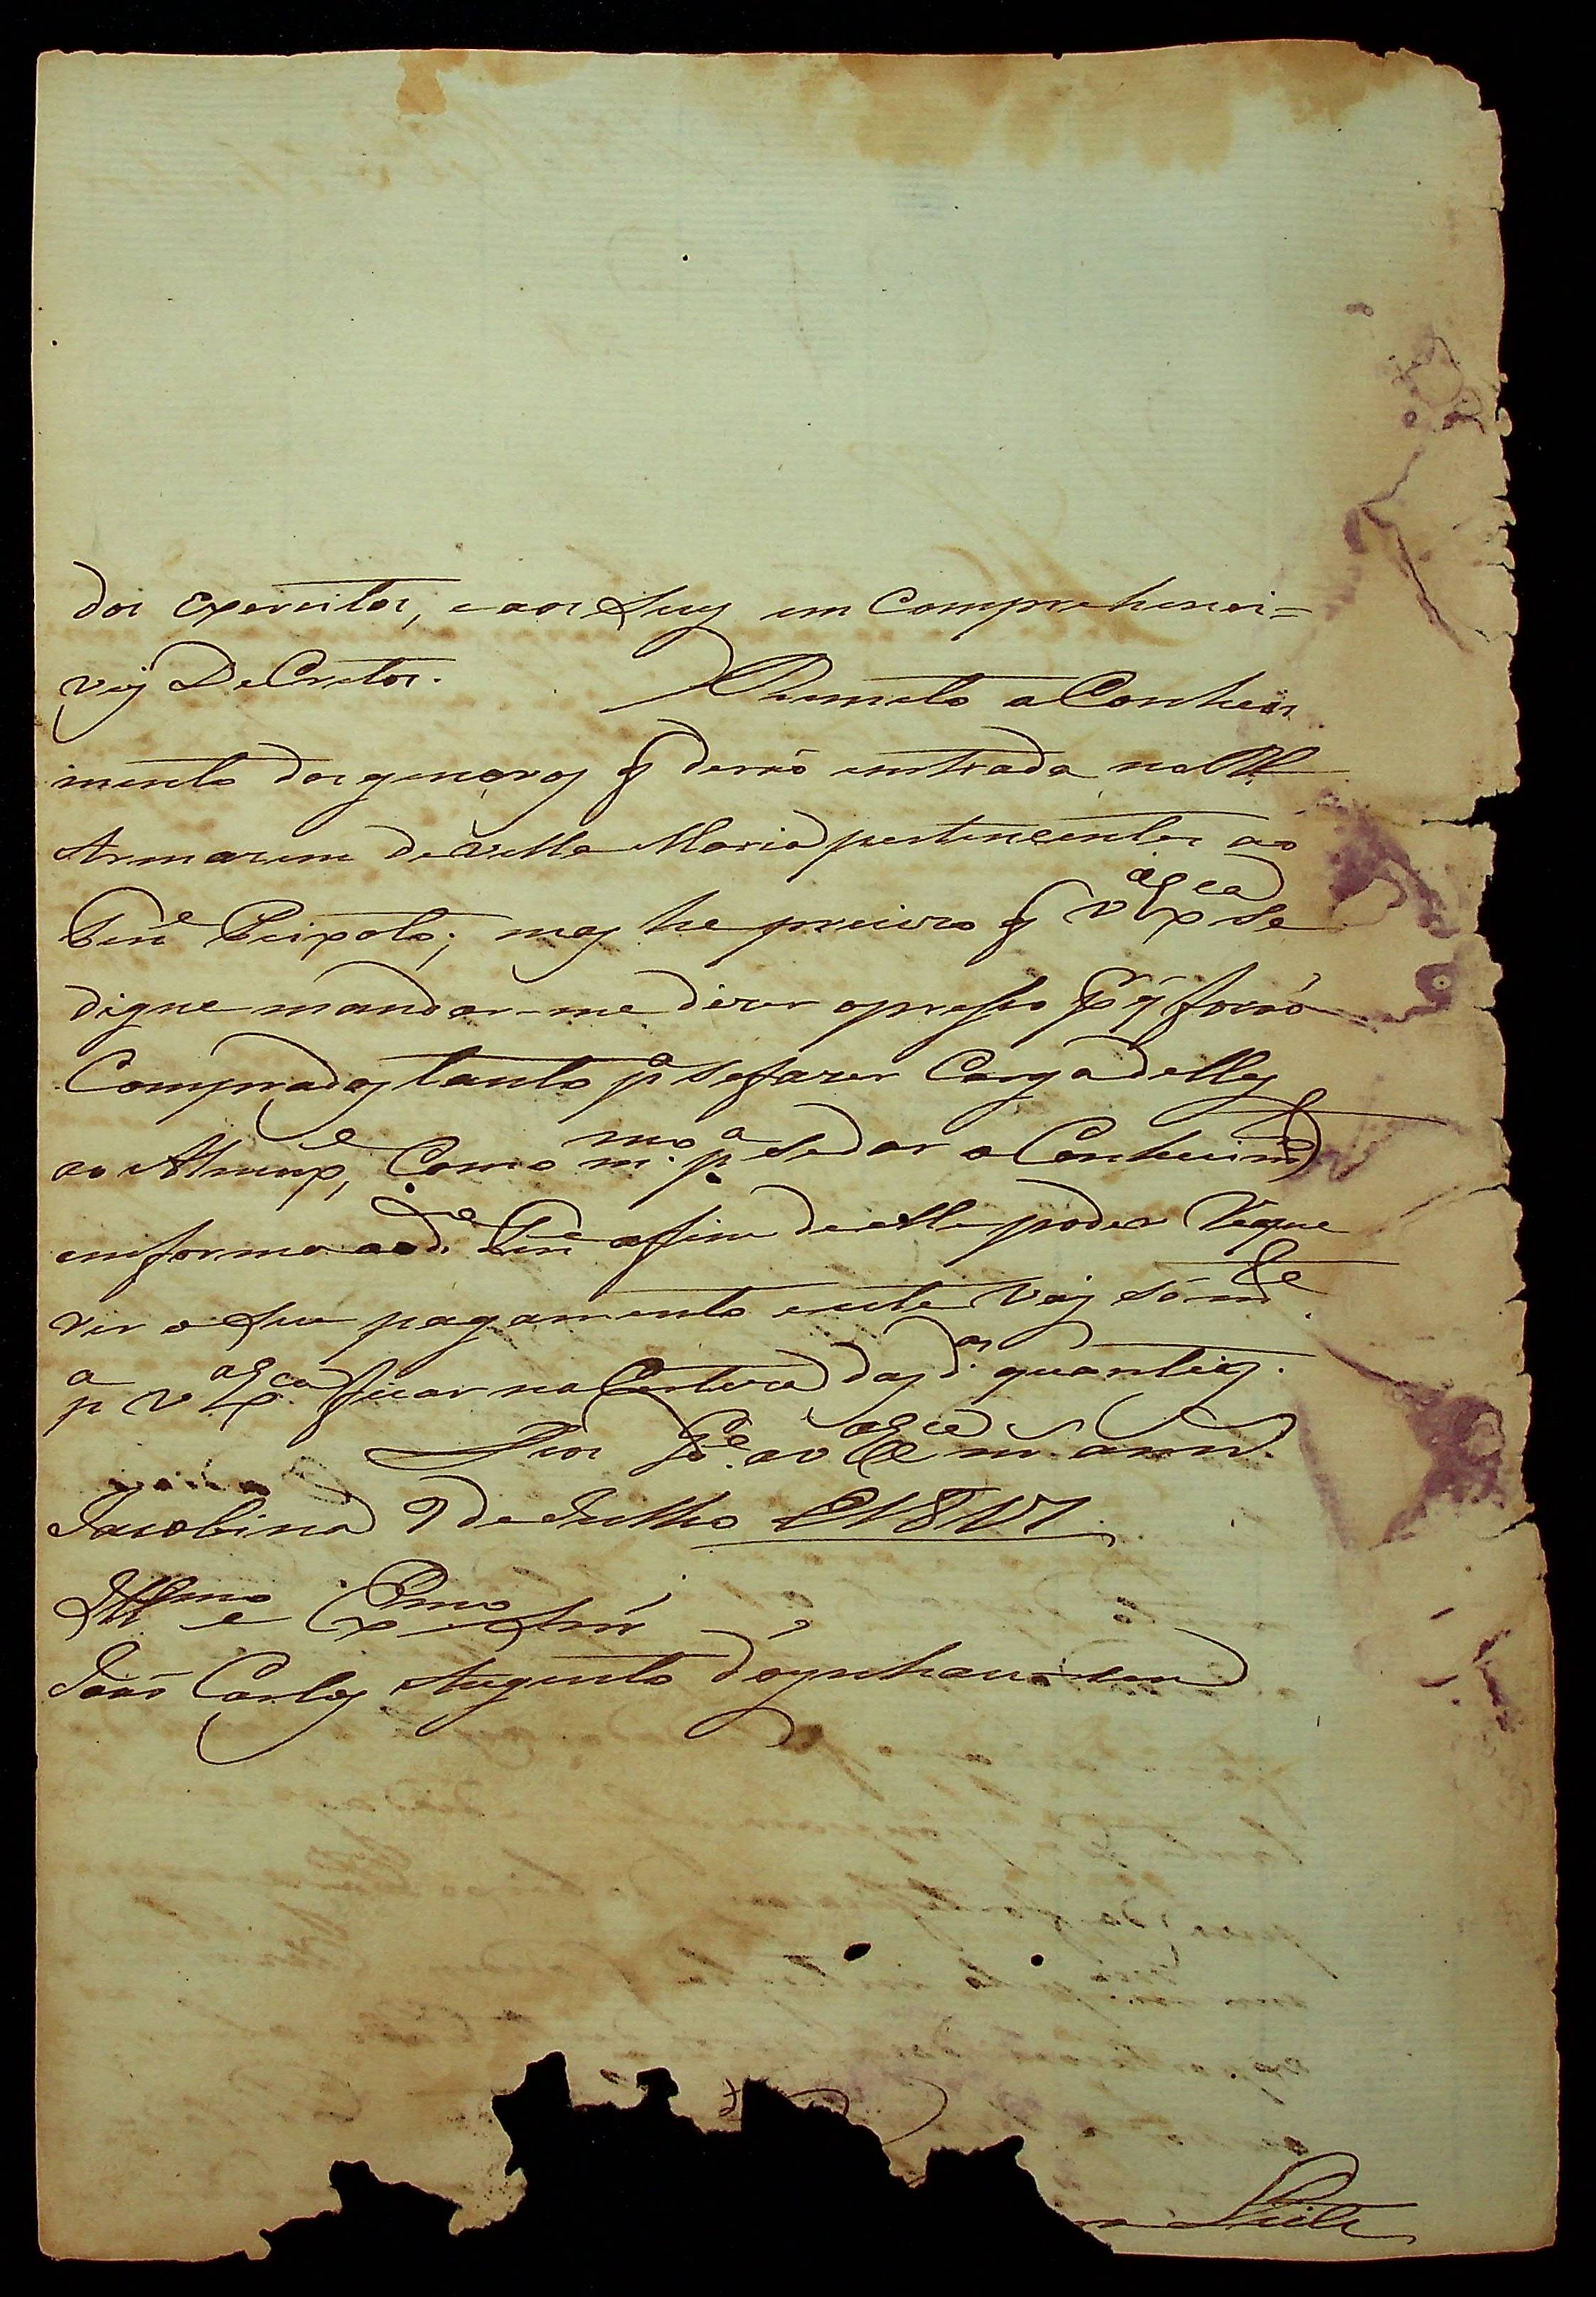 dos Exercitos, e aos Seus im Comprehensi=
veis DeCretos. Remeto o Conheci
mento dos generos q derão entrada no R.
Armazem de Villa Maria pertencentes ao
Tene Peixoto; mas he precizo q V Exca se
digne mandar-me dizer o preso pr q forão
Comprados tanto pa se fazer Carga delles
ao Almoxe, Como mmo pa se dar o Conhecimto
em forma ao de Tene afim de elle poder Reque
rer o Seu pagamento e este vay sómte
pa V Exca ficar na Certeza das das quantias.
Deos Ge a V Exca m. ann.
Jacobina 9 de Julho 1817
Illmo e Exmo Snr
João Carlos Augusto d'Oeynhausen
Leite